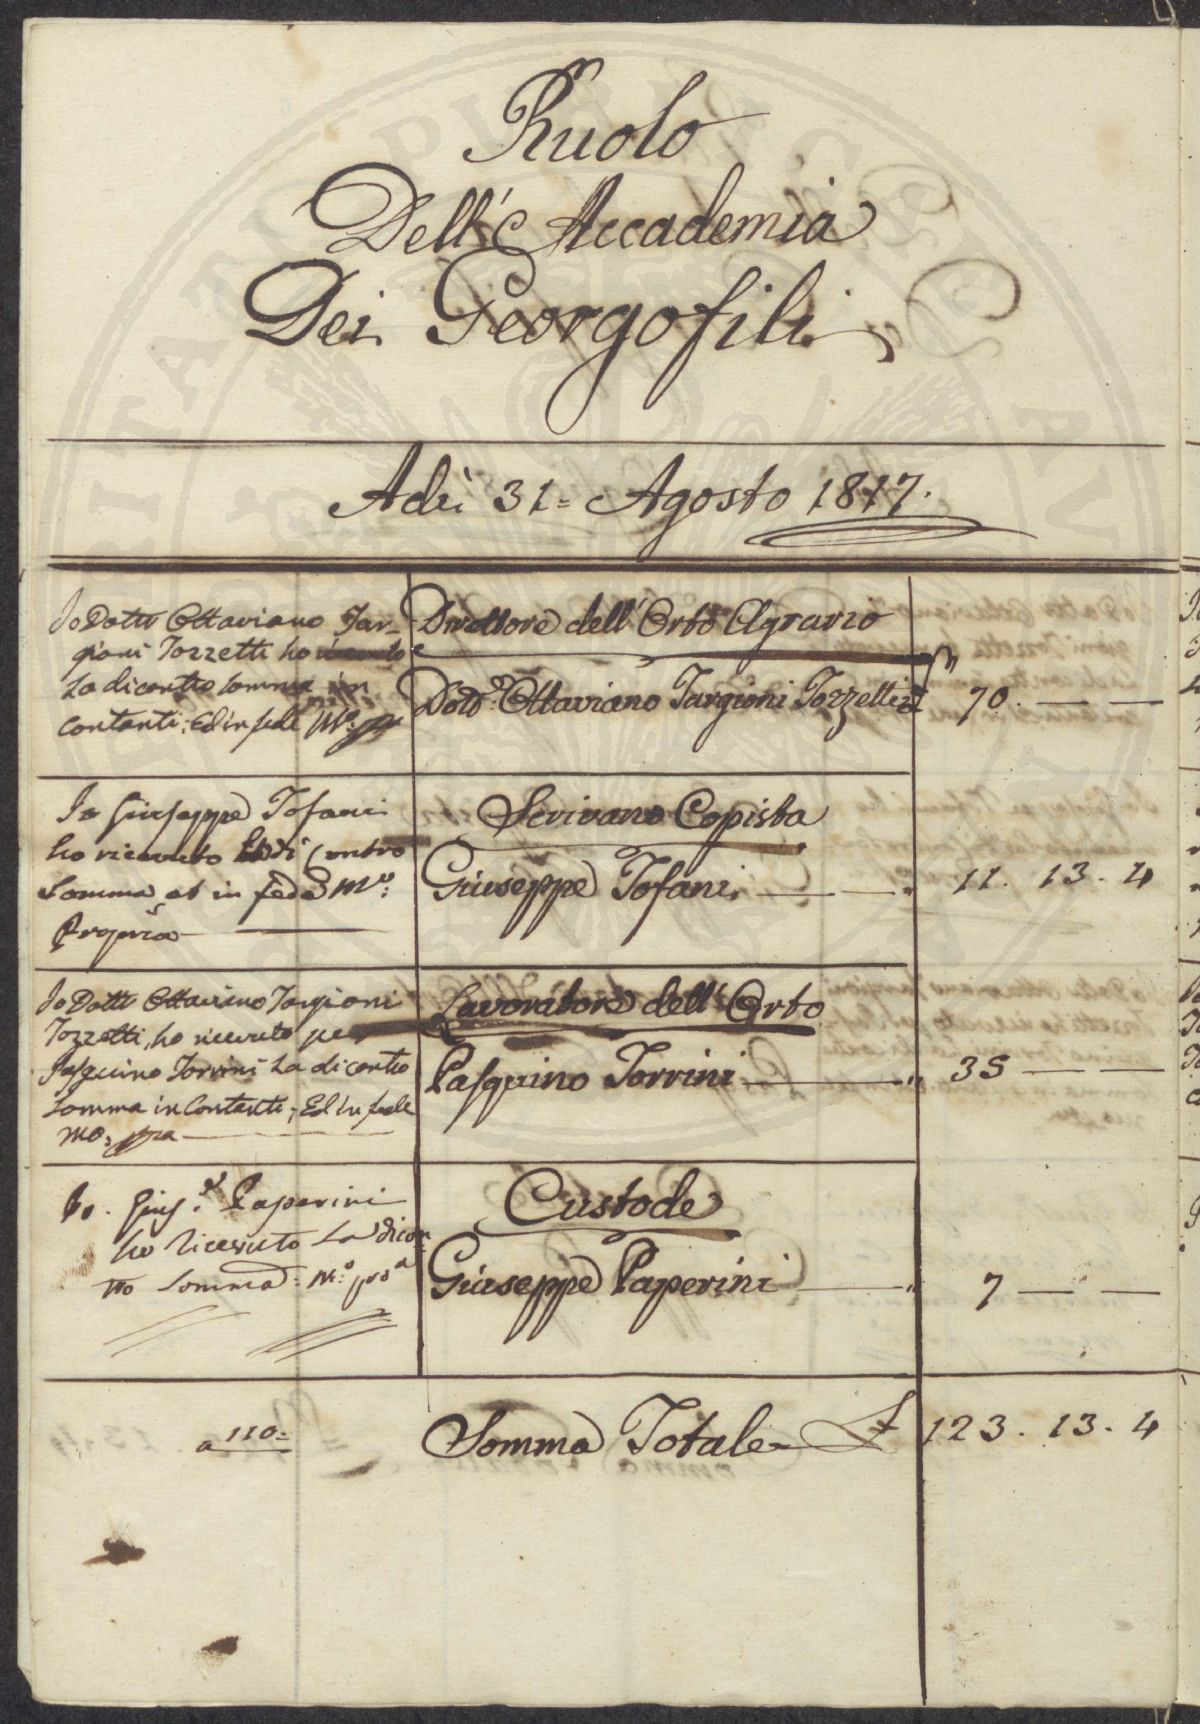 Ruolo
Dell' Accademia
Dei Georgofili
Adì 31= Agosto 1817.
Io Dottr Ottaviano Tar-
gioni Tozzetti ho ricevuto
La dicontro somma in
contanti; Ed in fede Mo. pa
Direttore dell'Orto Agrario
Dotor. Ottaviano Targioni Tozzetti £ 70. — —
Io Giuseppe Tofani
ho ricevuto Contro
Somma et in fede Mo:
Propria
Scrivano Copista
Giuseppe Tofani. — — " 11. 13. 4
Io Dottr Ottaviano Targioni
Tozzetti, ho ricevuto per
Pasquino Torrini La dicontro
somma in Contanti; Ed in fede
mo: pra
Lavoratore dell' Orto
Pasquino Torrini — " 35 — —
Io. Giuse. Paperini
ho Ricevuto La dicon
tro Somma: M:o proa
Custode
Giuseppe Paperini — " 7 — —
a 110=
Somma Totale £ 123. 13. 4